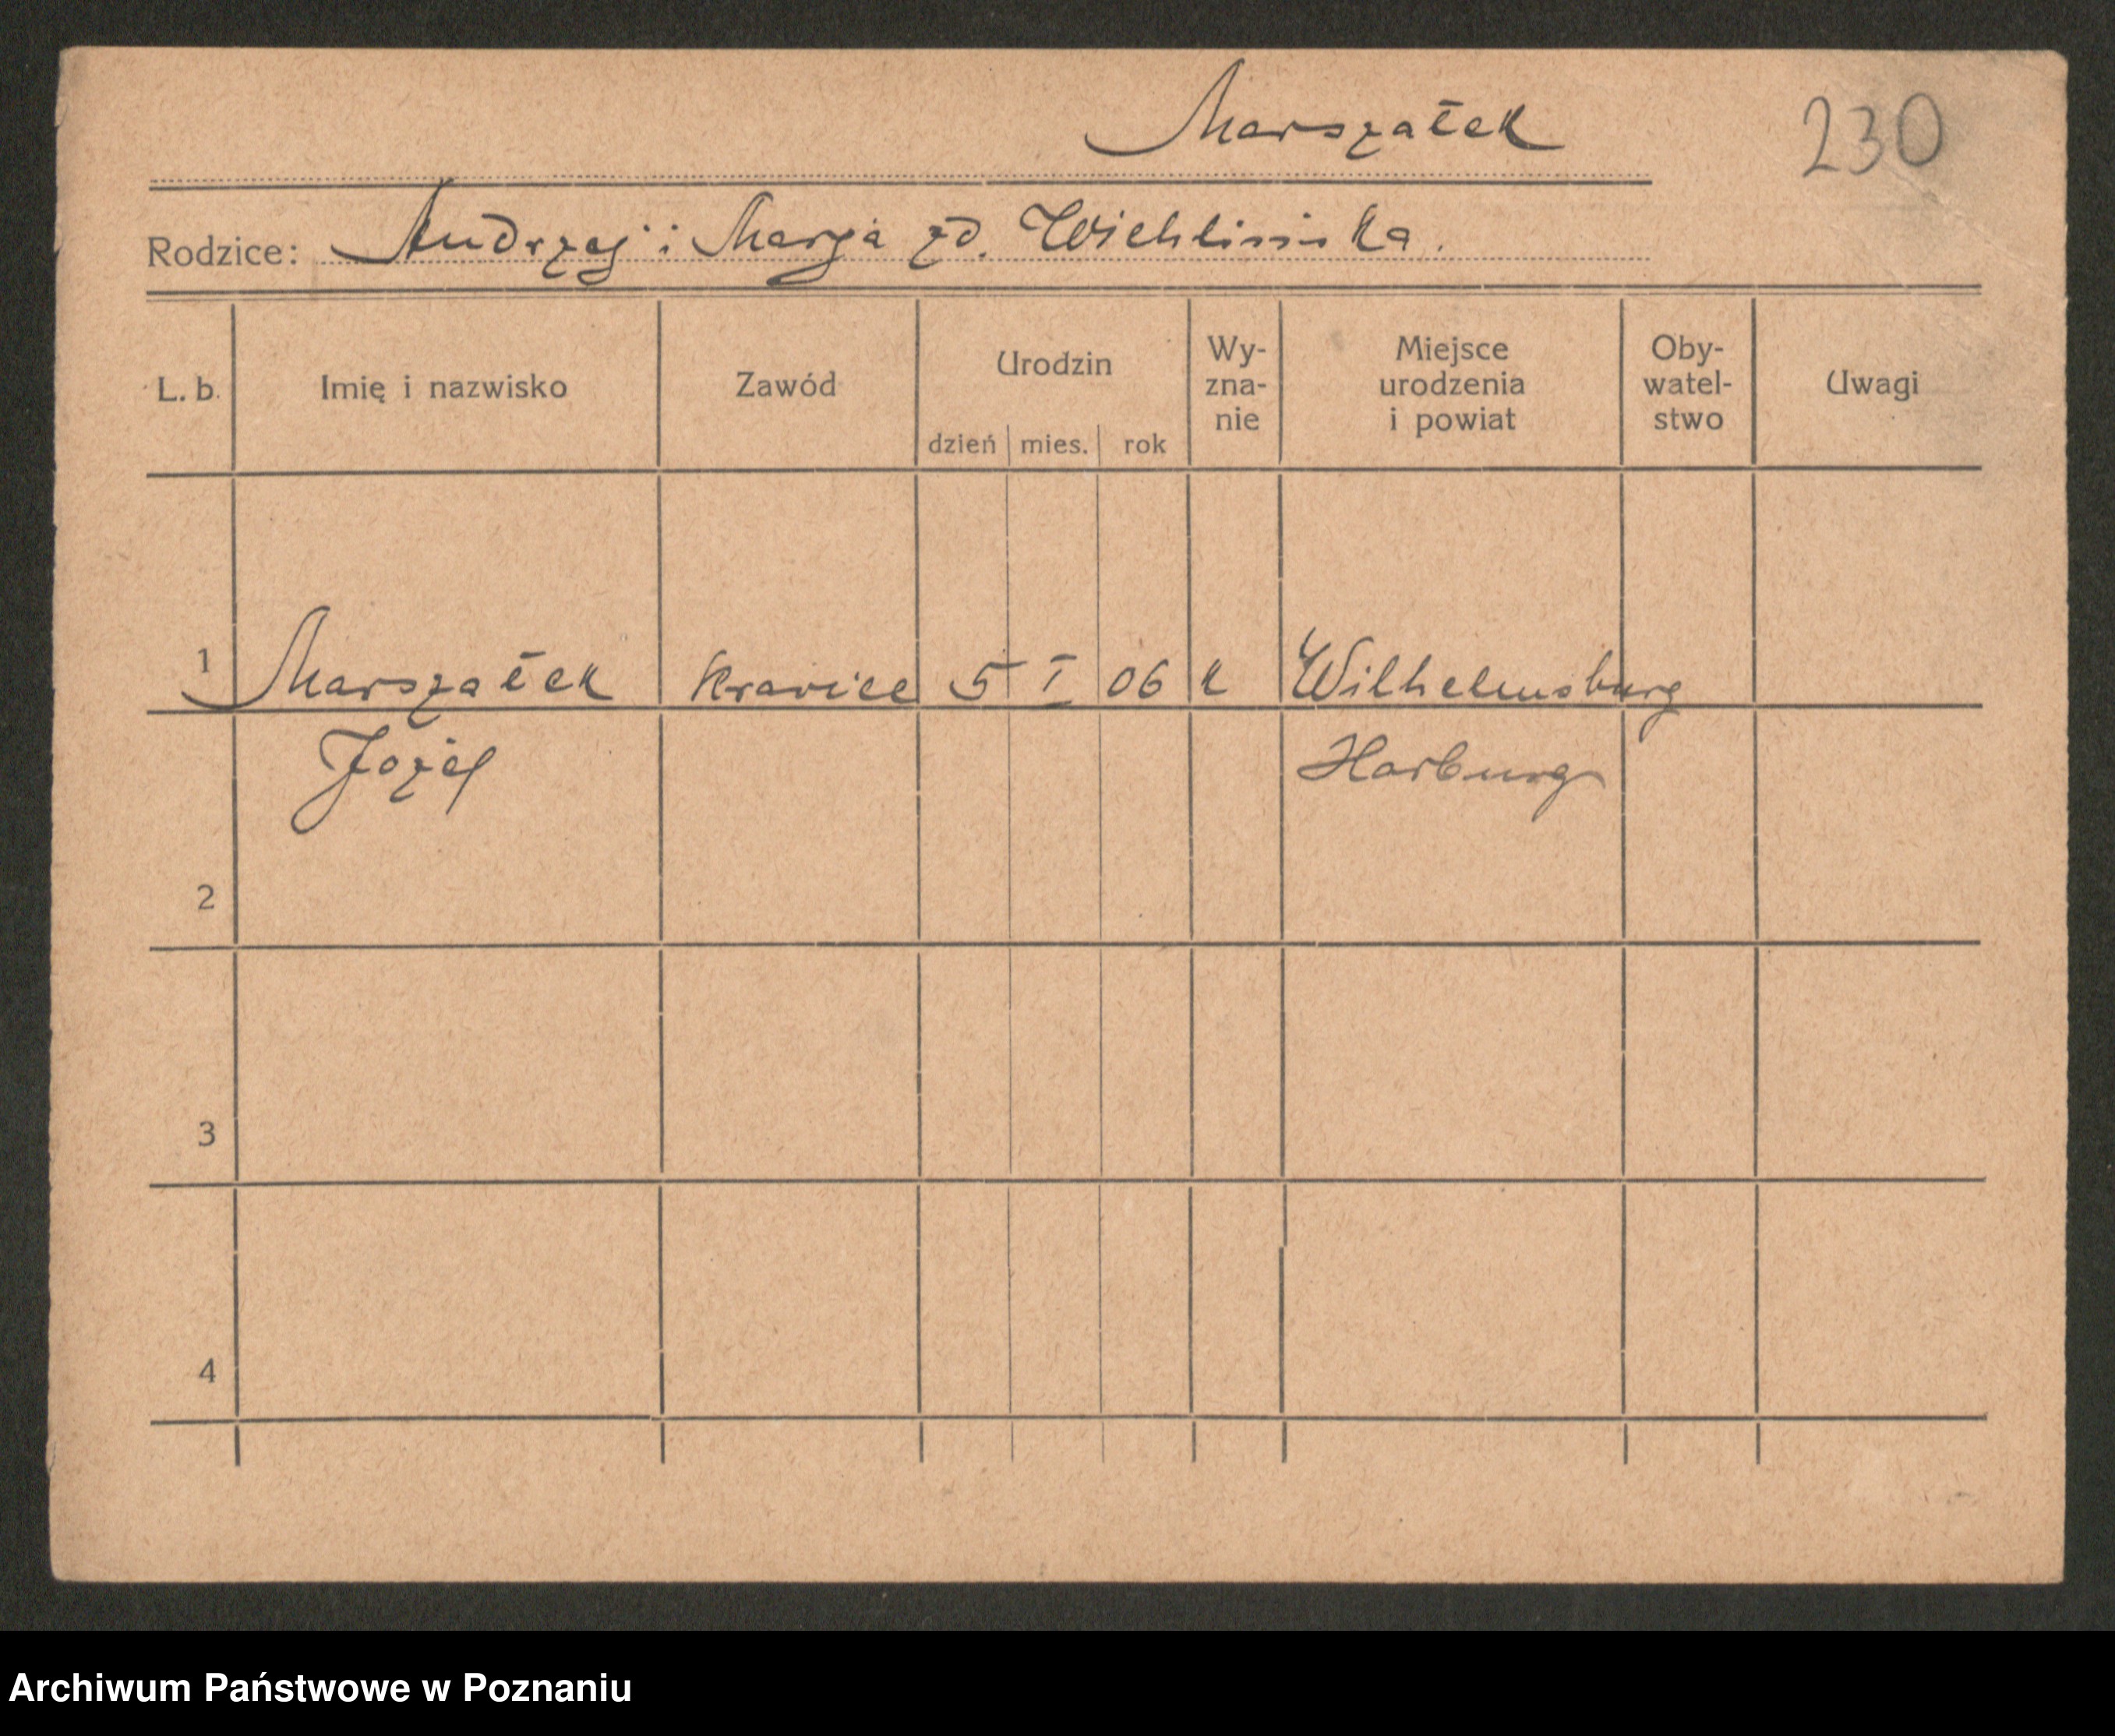 Marszałek
230
Rodzice: Andrzej i Marja zd. Wichlińska.
L. b. Imię i nazwisko Zawód Urodzin dzień mies. rok Wy-zna-nie Miejsce urodzenia i powiat Oby-watel-stwo Uwagi
1 Marszałek Krawiec 5 I 06 k Wilhelmsburg
Józef Harburg
2
3
4
Archiwum Państwowe w Poznaniu